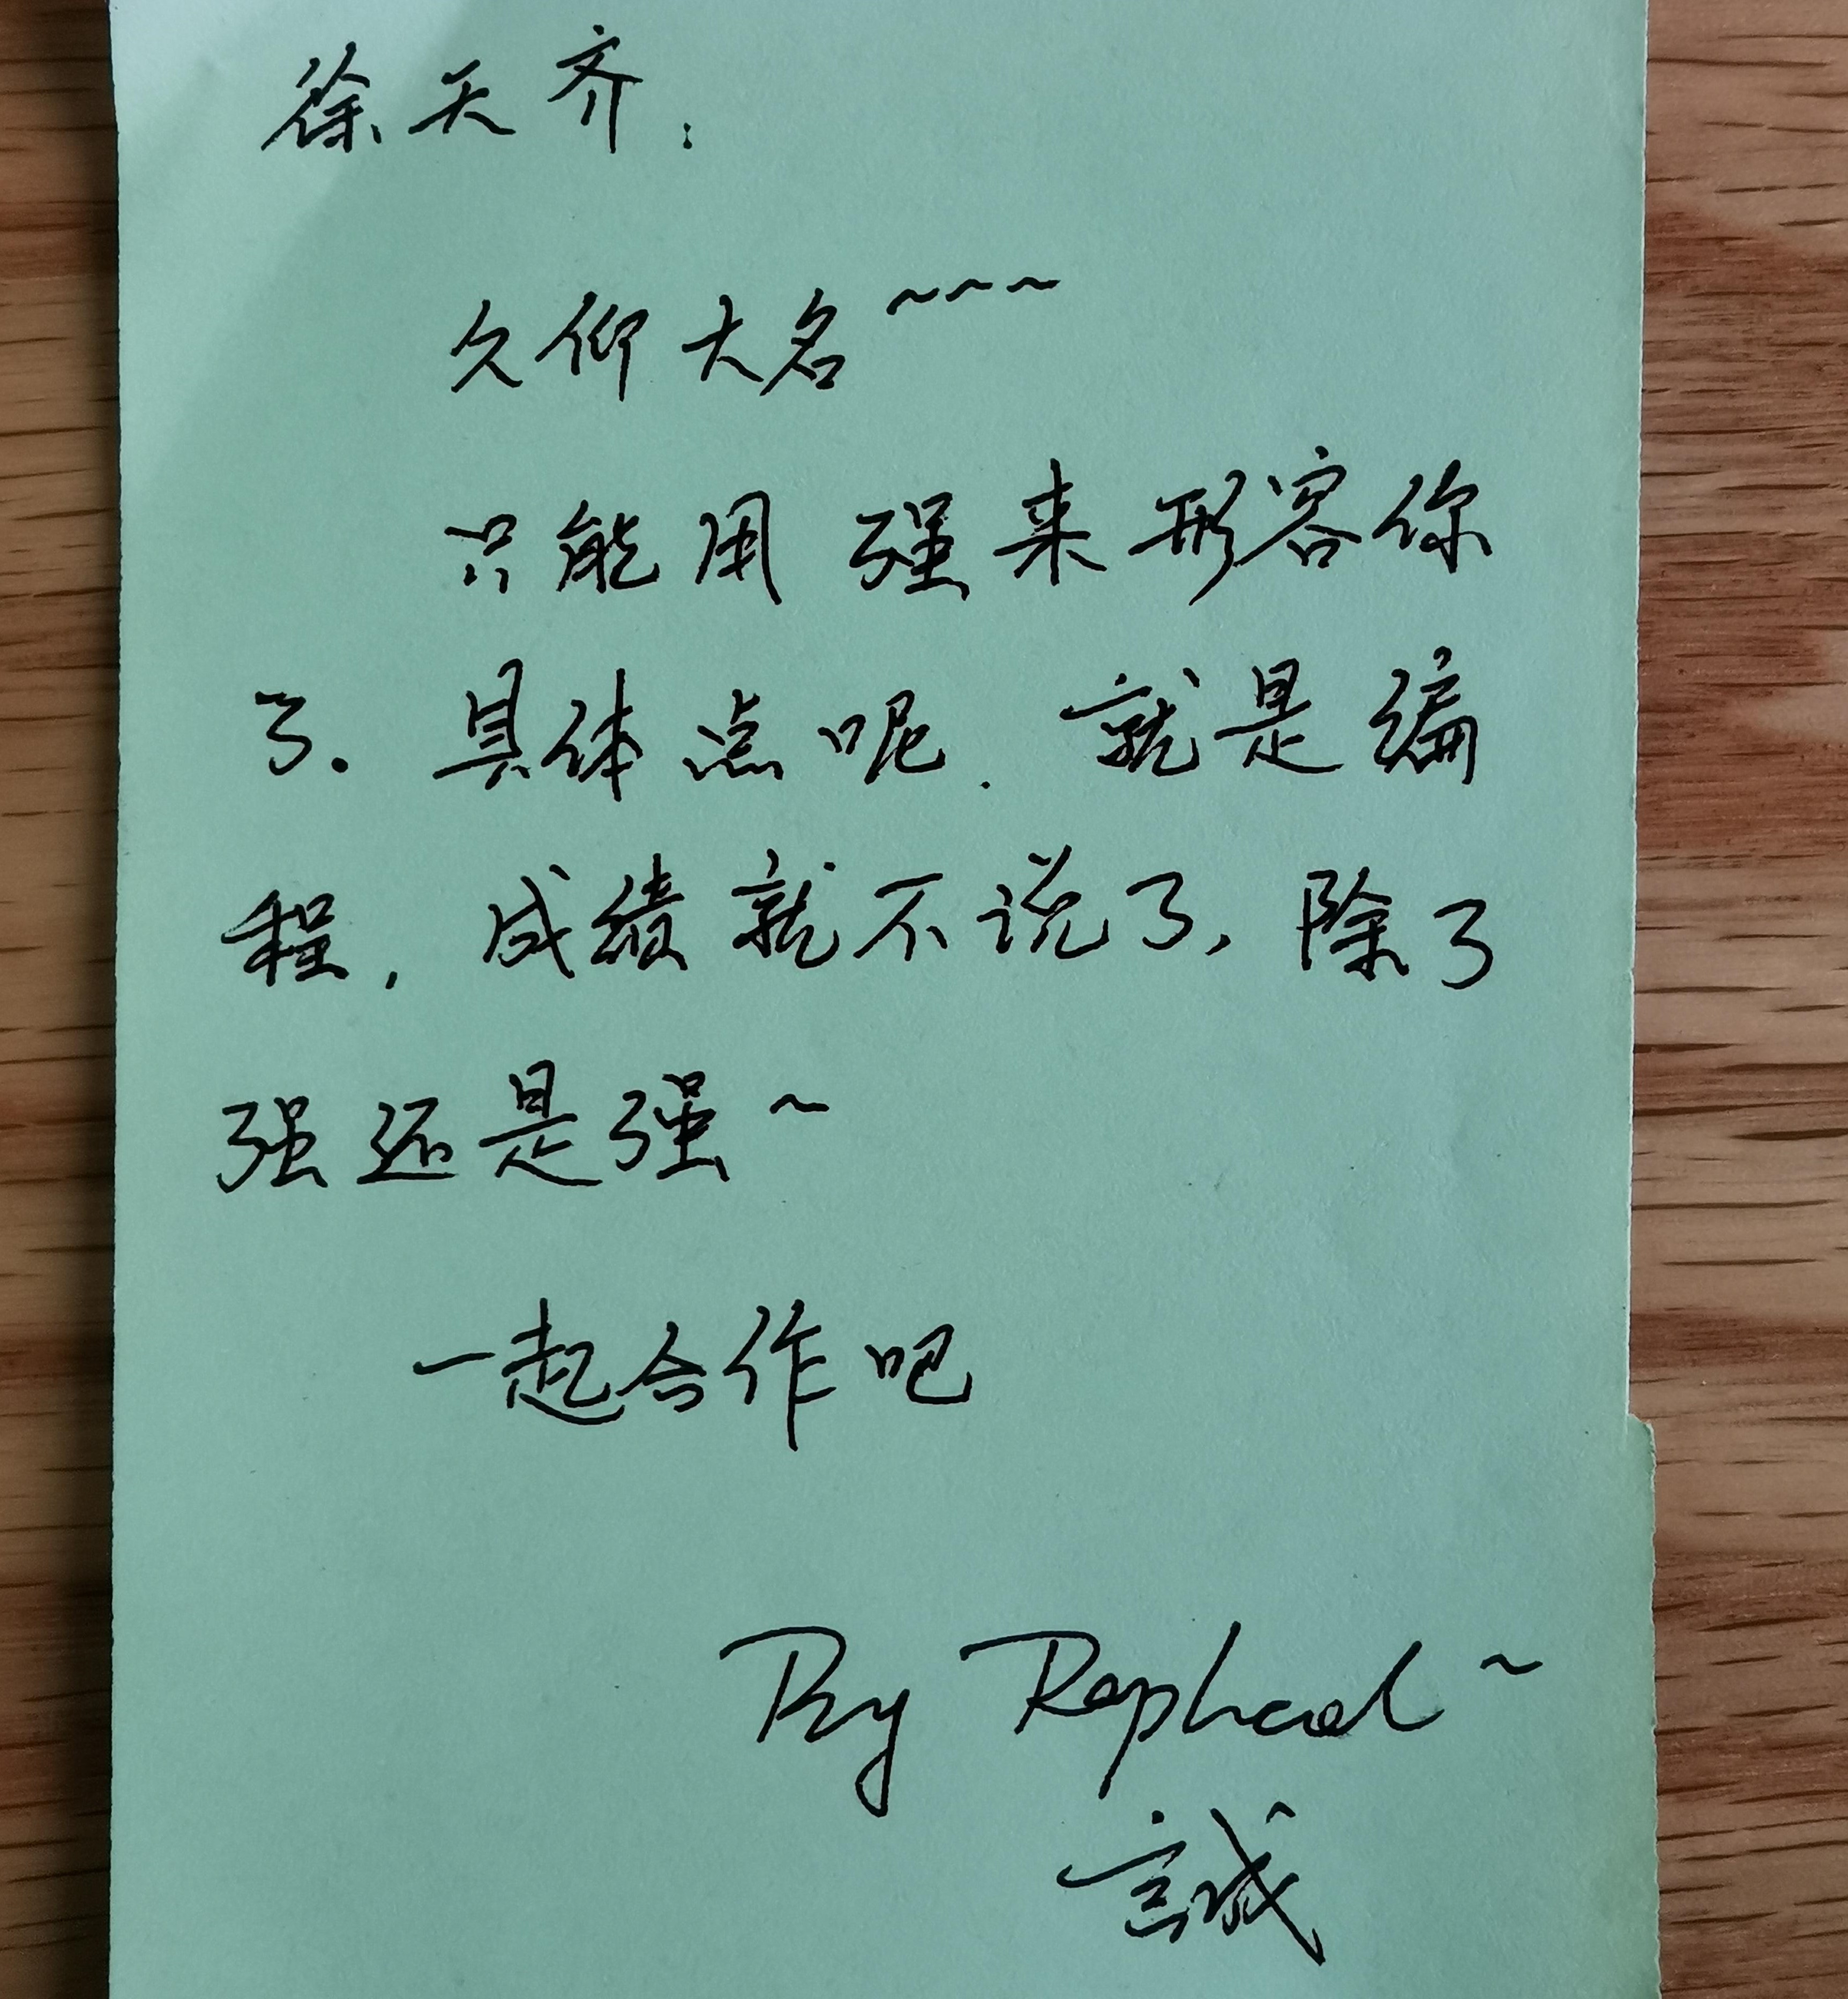 徐天齐:
久仰大名~~~
只能用强来形容你
了。具体点呢,就是编
程,成绩就不说了,除了
强还是强~
一起合作吧
By Raphael~
誠